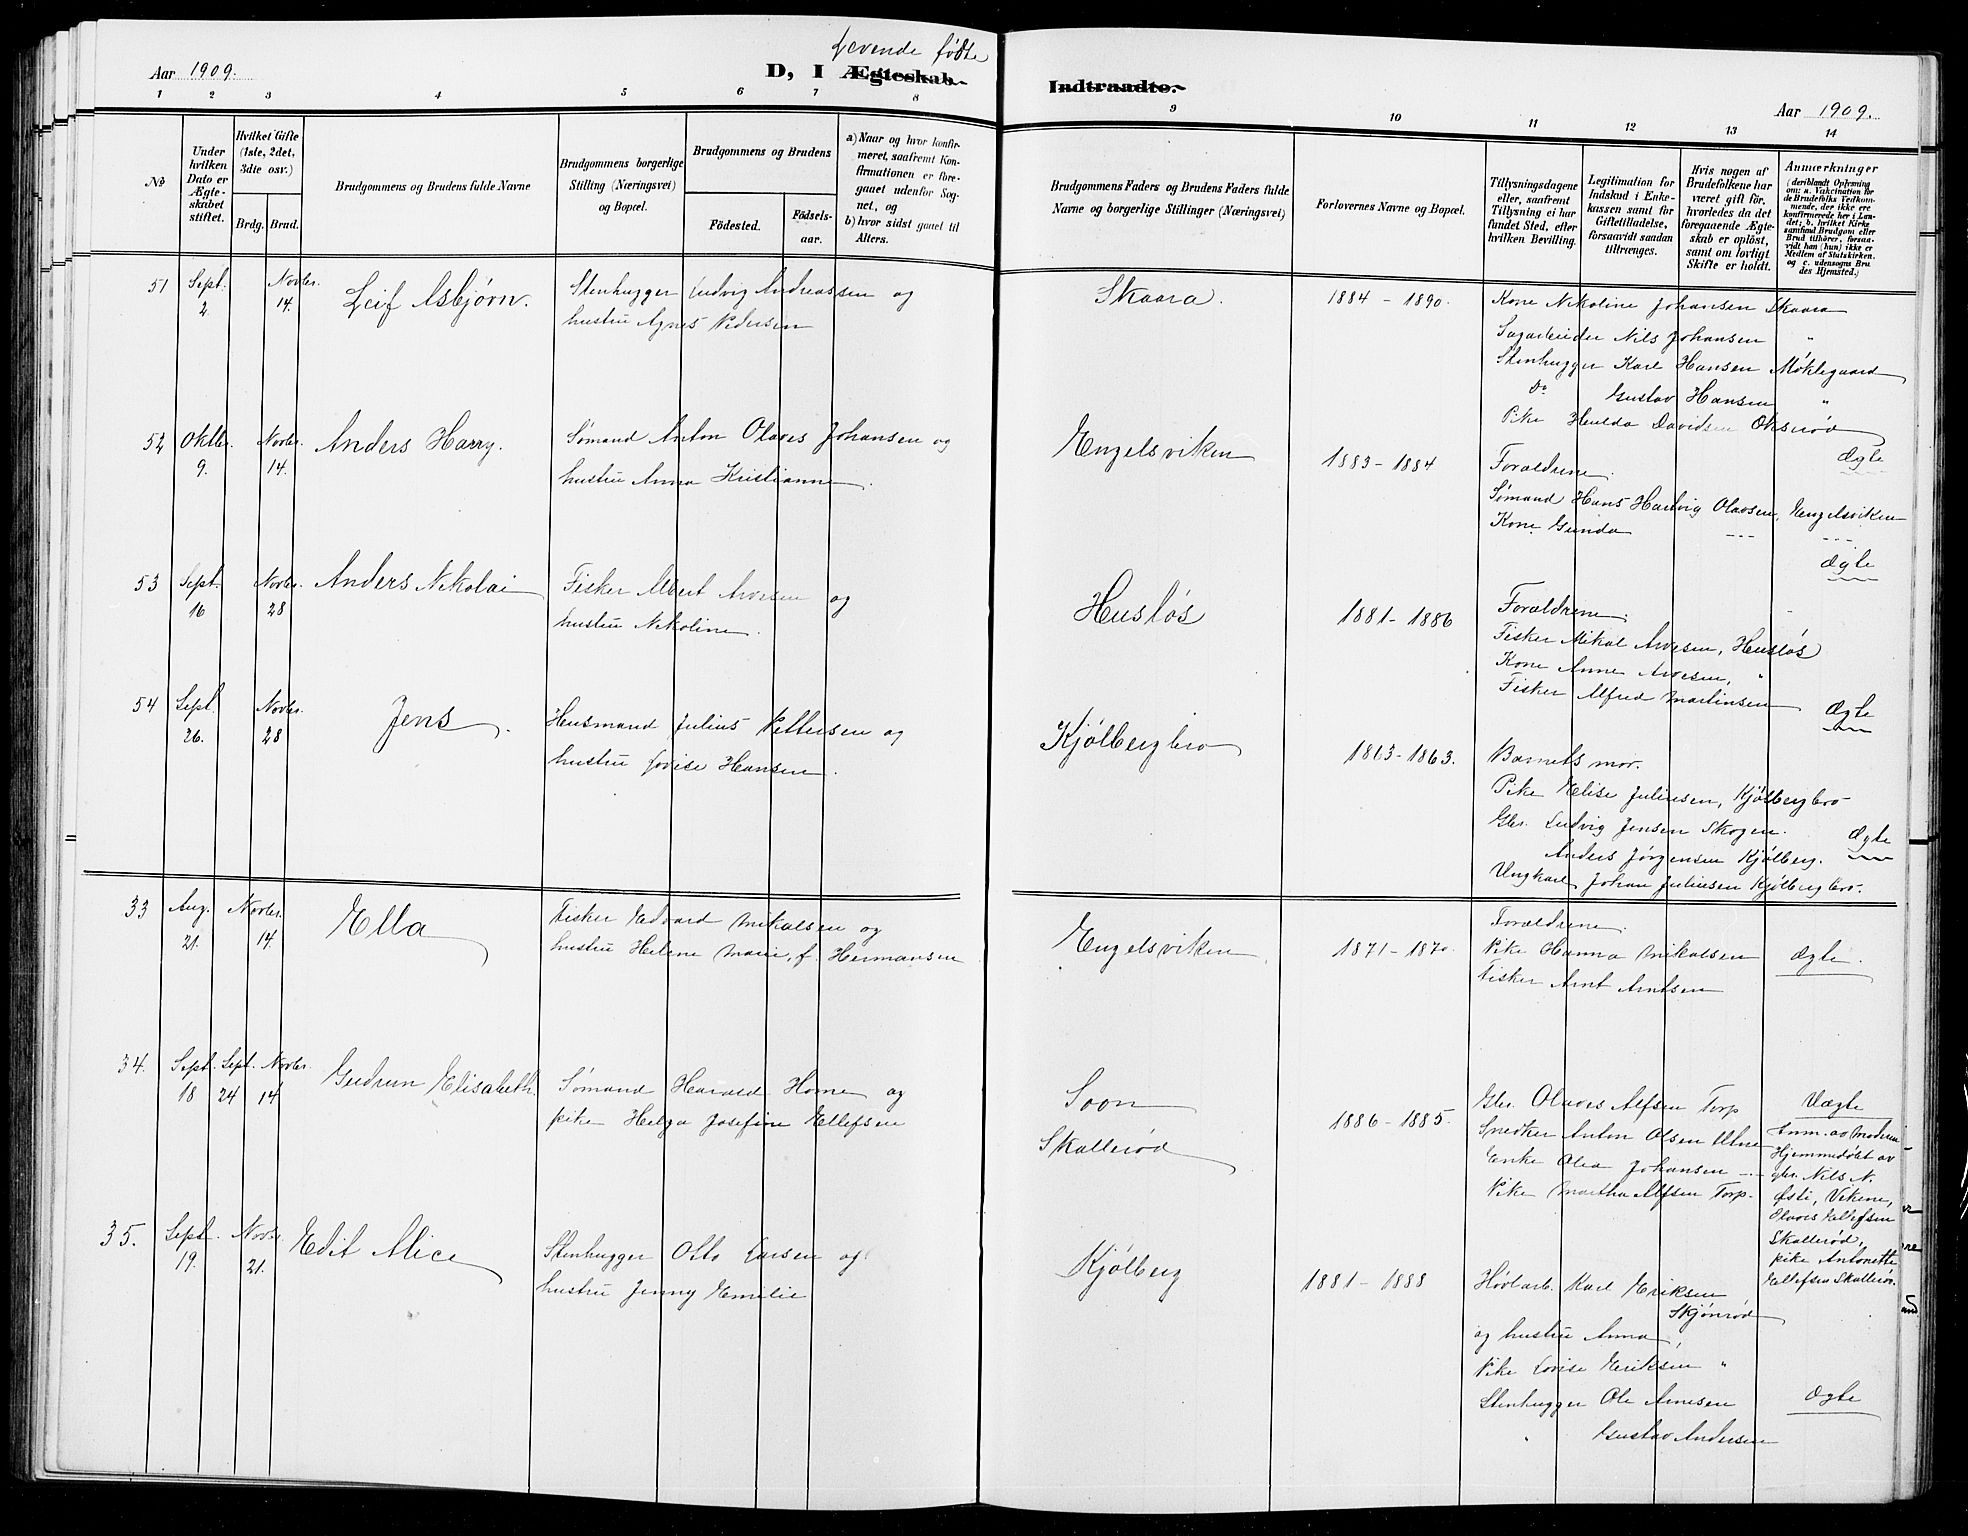 Levende fødte
Aar 1909.
D, I Ægteskab Indtraadte.
Aar 1909.
1 2 3 4 5 6 7 8 9 10 11 12 13 14
No
Under hvilken Dato er Ægteskabet stiftet.
Hvilket Gifte (1ste, 2det, 3dte osv.)
Brdg. Brud.
Brudgommens og Brudens fulde Navne
Brudgommens borgerlige Stilling (Næringsvei) og Bopæl.
Brudgommens og Brudens
Fødested.
Fødselsaar.
a) Naar og hvor konfirmeret, saafremt Konfirmationen er foregaaet udenfor Sognet, og
b) hvor sidst gaaet til Alters.
Brudgommens Faders og Brudens Faders fulde Navne og borgerlige Stillinger (Næringsvei)
Forlovernes Navne og Bopæl.
Tillysningsdagene eller, saafremt Tillysning ei har fundet Sted, efter hvilken Bevilling.
Legitimation for Indskud i Enkekassen samt for Giftetilladelse, forsaavidt saadan tiltrænges.
Hvis nogen af Brudefolkene har været gift før, hvorledes da det foregaaende Ægteskab er opløst, samt om lovligt Skifte er holdt.
Anmærkninger
(deriblandt Oplysning om: a. Vakcination for de Brudefolks Vedkommende, der ikke ere konfirmerede her i Landet; b. hvilket Kirkesamfund Brudgom eller Brud tilhører, forsaavidt han (hun) ikke er Medlem af Statskirken, og c. udensogns Brudes Hjemsted.)
51 Sept. 2 Novbr. 14. Leif Asbjørn. Stenhugger Ludvig Andreassen og
hustru Agnes Pedersen
Skaara. 1884 - 1890.
Kone Nikoline Johansen Skaara
Sagarbeider Nils Johansen "
Stenhugger Karl Hansen Møklegaard
Do Gustav Hansen "
Pike Hulda Davidsen Oksrød
Ægte
52 Oktbr. 9. Novbr. 14. Anders Harry. Sømand Anton Olaves Johansen og
hustru Anna Kristianne.
Engelsviken 1883 - 1884
Forældrene.
Sømand Hans Hartvig Olavsen, Engelsviken
Kone Gunda --- ---
Ægte
53 Sept. 16 Novbr. 28 Anders Nikolai Fisker Albert Arvesen og
hustru Nikoline.
Husløs 1881 - 1886
Forældrene.
Fisker Mikal Arvesen, Husløs
Kone Anne Arvesen, "
Fisker Alfred Martinsen
Ægte
54 Sept. 26. Novbr. 28 Jens. Husmand Julius Pettersen og
hustru Lovise Hansen.
Kjølbergbro 1863 - 1863.
Barnets mor.
Pike Elise Juliusen, Kjølbergbro
Gbr. Ludvig Jensen Skogen.
Anders Jørgensen Kjølberg.
Ungkarl Johan Juliusen Kjølbergbro.
Ægte
33 Aug. 21. Novbr. 14. Ella Fisker Edvard Mikalsen og
hustru Helene Marie, f. Hermansen
Engelsviken. 1871 - 1870.
Forældrene.
Pike Hanna Mikalsen
Fisker Arnt Arntsen
Ægte.
34. Sept. 18 Sept. 24 Novbr. 14 Gudrun Elisabeth. Sømand Harald Horne og
pike Helga Josefine Ellefsen
Soon
Skallerød
1886 - 1885.
Gbr. Olaves Alfsen Torp
Snedker Anton Olsen Ulne
Enke Olea Johansen -
Pike Martha Alfsen Torp.
Uægte
Anm. av moderen
Hjemmedøbt av
gbr. Nils N.
Østi, Vikene,
Olaves Ellefsen
Skallerød,
pike Antonette
Ellefsen Skallerød.
35. Sept. 19. Novbr. 21. Edit Alice Stenhugger Otto Larsen og
hustru Jenny Emilie
Kjølberg 1881 - 1888
Høvlarb. Karl Eriksen
Skjønrød
og hustru Anna,
Pike Lovise Eriksen "
Stenhugger Ole Arnesen
" Gustav Andersen
Ægte